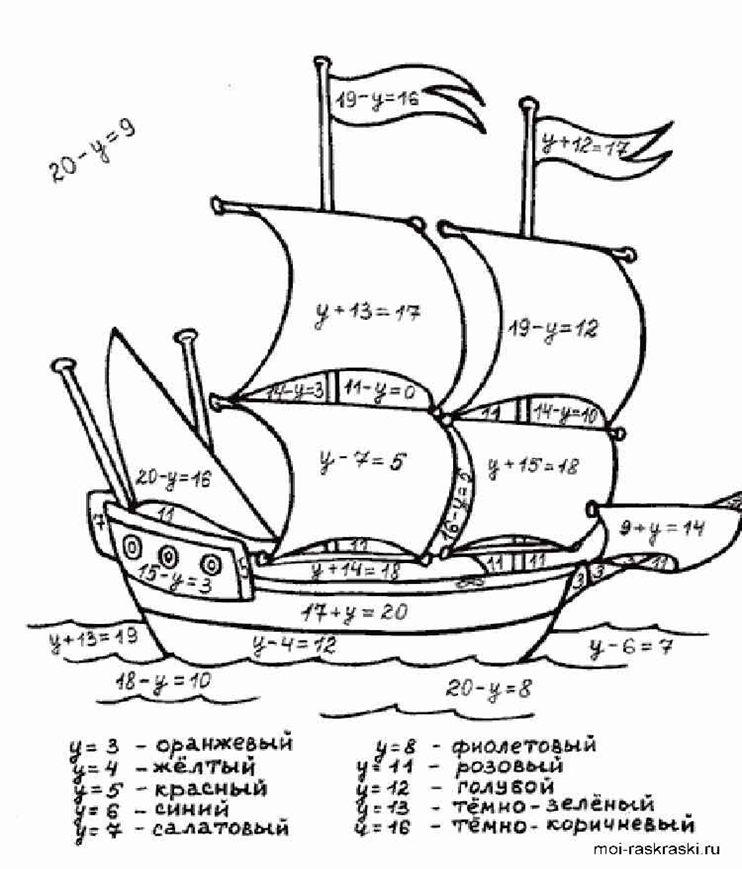 19-у=16
20-у=9
у+12=17
у+13=17
19-у=12
14-у=3
11-у=0
11
14-у=10
у-7=5
у+15=18
20-у=16
16-у=5
11
7
9+у=14
11
11
11
15-у=3
5
у+14=18
3
3
3
11
17+у=20
у+13=19
у-4=12
у-6=7
18-у=10
20-у=8
у=3 - оранжевый
у=4 - жёлтый
у=5 - красный
у=6 - синий
у=7 - салатовый
у=8 - фиолетовый
у=11 - розовый
у=12 - голубой
у=13 - тёмно-зелёный
у=16 - тёмно-коричневый
moi-raskraski.ru